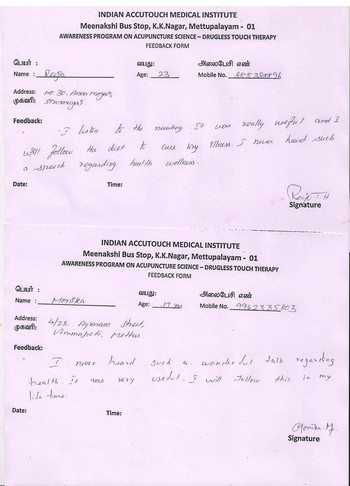 INDIAN ACCUTOUCH MEDICAL INSTITUTE
Meenakshi Bus Stop, K.K.Nagar, Mettupalayam - 01
AWARENESS PROGRAM ON ACUPUNCTURE SCIENCE – DRUGLESS TOUCH THERAPY
FEEDBACK FORM
பெயர் : வயது: அலைபேசி எண்
Name : Age: 23 Mobile No.
Address: No 30, Anna nagar,
முகவரி:
Feedback:
I listen to the meeting. It was really useful and I
will follow the diet to cure my illness. I never heard such
a speech regarding health wellness.
Date: Time:
Signature
INDIAN ACCUTOUCH MEDICAL INSTITUTE
Meenakshi Bus Stop, K.K.Nagar, Mettupalayam - 01
AWARENESS PROGRAM ON ACUPUNCTURE SCIENCE – DRUGLESS TOUCH THERAPY
FEEDBACK FORM
பெயர் : வயது: அலைபேசி எண்
Name : Monika Age: Mobile No.
Address: 4/23, street,
முகவரி: Mettur
Feedback:
I never heard such a wonderful talk regarding
health. It was very useful. I will follow this in my
life time.
Date: Time:
Monika. M.
Signature